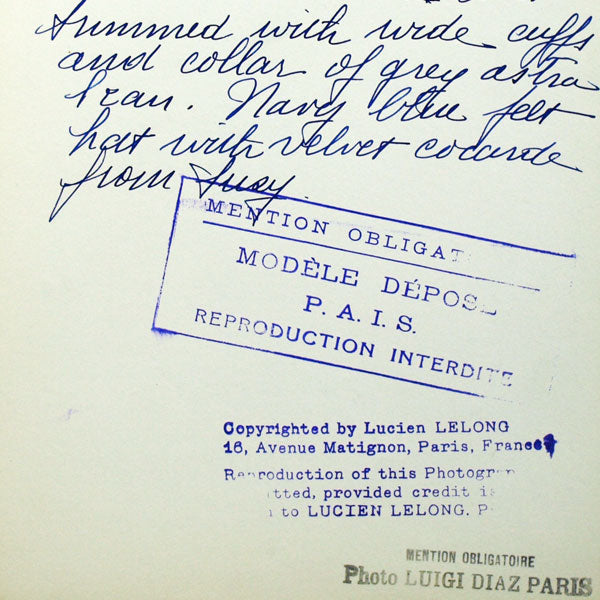 trimmed with wide cuffs
and collar of grey astra
kran. Navy blue felt
hat with velvet cocarde
from Suzy.
MENTION OBLIGAT
MODÈLE DÉPOS
P. A. I. S.
REPRODUCTION INTERDITE
Copyrighted by Lucien LELONG
16, Avenue Matignon, Paris, France
Reproduction of this Photogr
tted, provided credit is
to LUCIEN LELONG. P
MENTION OBLIGATOIRE
Photo LUIGI DIAZ PARIS